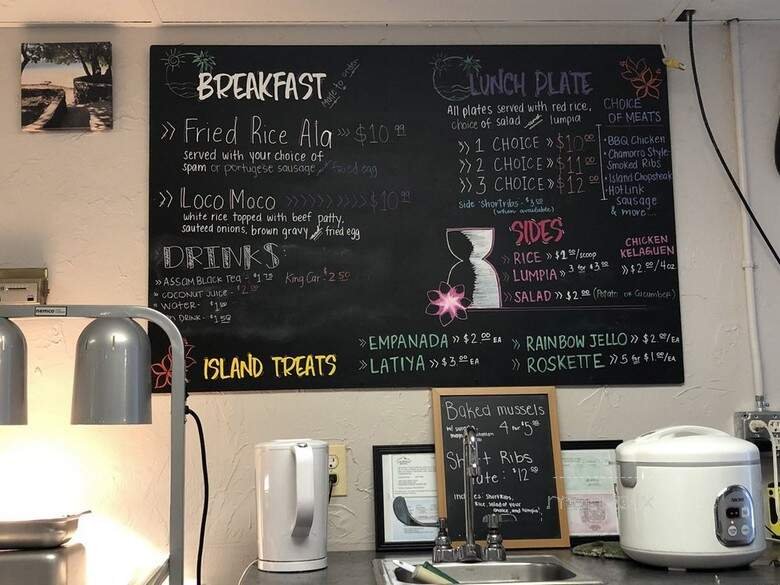 BREAKFAST
Made to order
» Fried Rice Ala »» $10.99
served with your choice of
spam or portugese sausage, fried egg
» Loco Moco »»»»» $10.99
white rice topped with beef patty,
sauteed onions, brown gravy, fried egg
DRINKS:
» ASSAM BLACK TEA - $1.75 King Car - $2.50
» COCONUT JUICE - $2.00
WATER - $1.00
DRINK - $1.50
LUNCH PLATE
All plates served with red rice,
choice of salad lumpia
» 1 CHOICE » $10.00
» 2 CHOICE » $11.00
» 3 CHOICE » $12.00
side shortribs - $3.00
(when available)
CHOICE
OF MEATS
• BBQ Chicken
• Chamorro Style
Smoked Ribs
• Island Chopsteak
• Hot Link
Sausage
& more...
SIDES
» RICE » $1.00/scoop
» LUMPIA » 3 for $3.00
» SALAD » $2.00 (Potato or Cucumber)
CHICKEN
KELAGUEN
» $2.00/4oz
ISLAND TREATS
» EMPANADA » $2.00 EA
» LATIYA » $3.00 EA
» RAINBOW JELLO » $2.00/EA
» ROSKETTE » 5 for $1.00/EA
Baked mussels
4 for $5.00
Short Ribs
$12.00
includes: Short Ribs,
Rice, salad of your
choice, and lumpia!
nemco